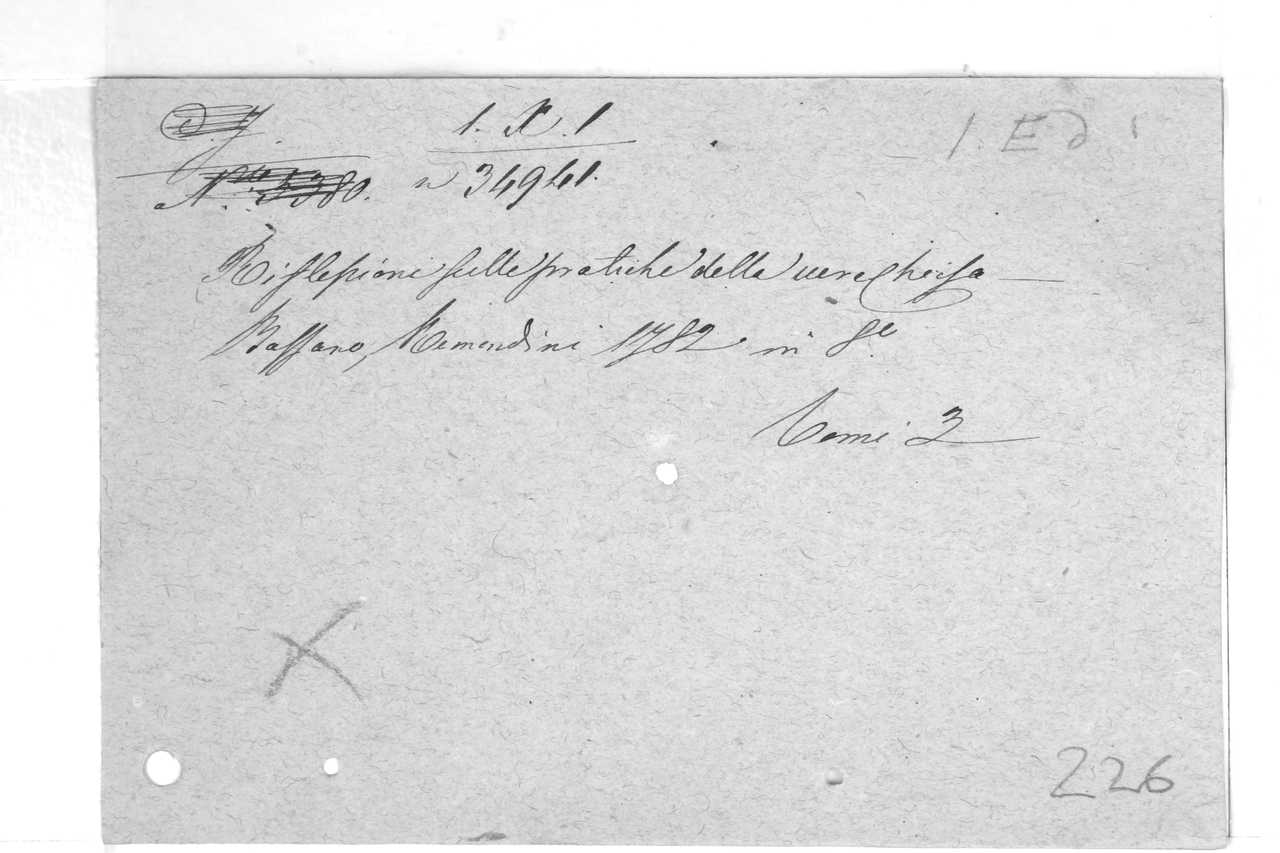 1. X. 1
1. E D 1
N.° 5380. n 34941.
Riflessioni sulle pratiche della vera Chiesa
Bassano, Remondini 1782 in 8°
Tomi 3
X
226